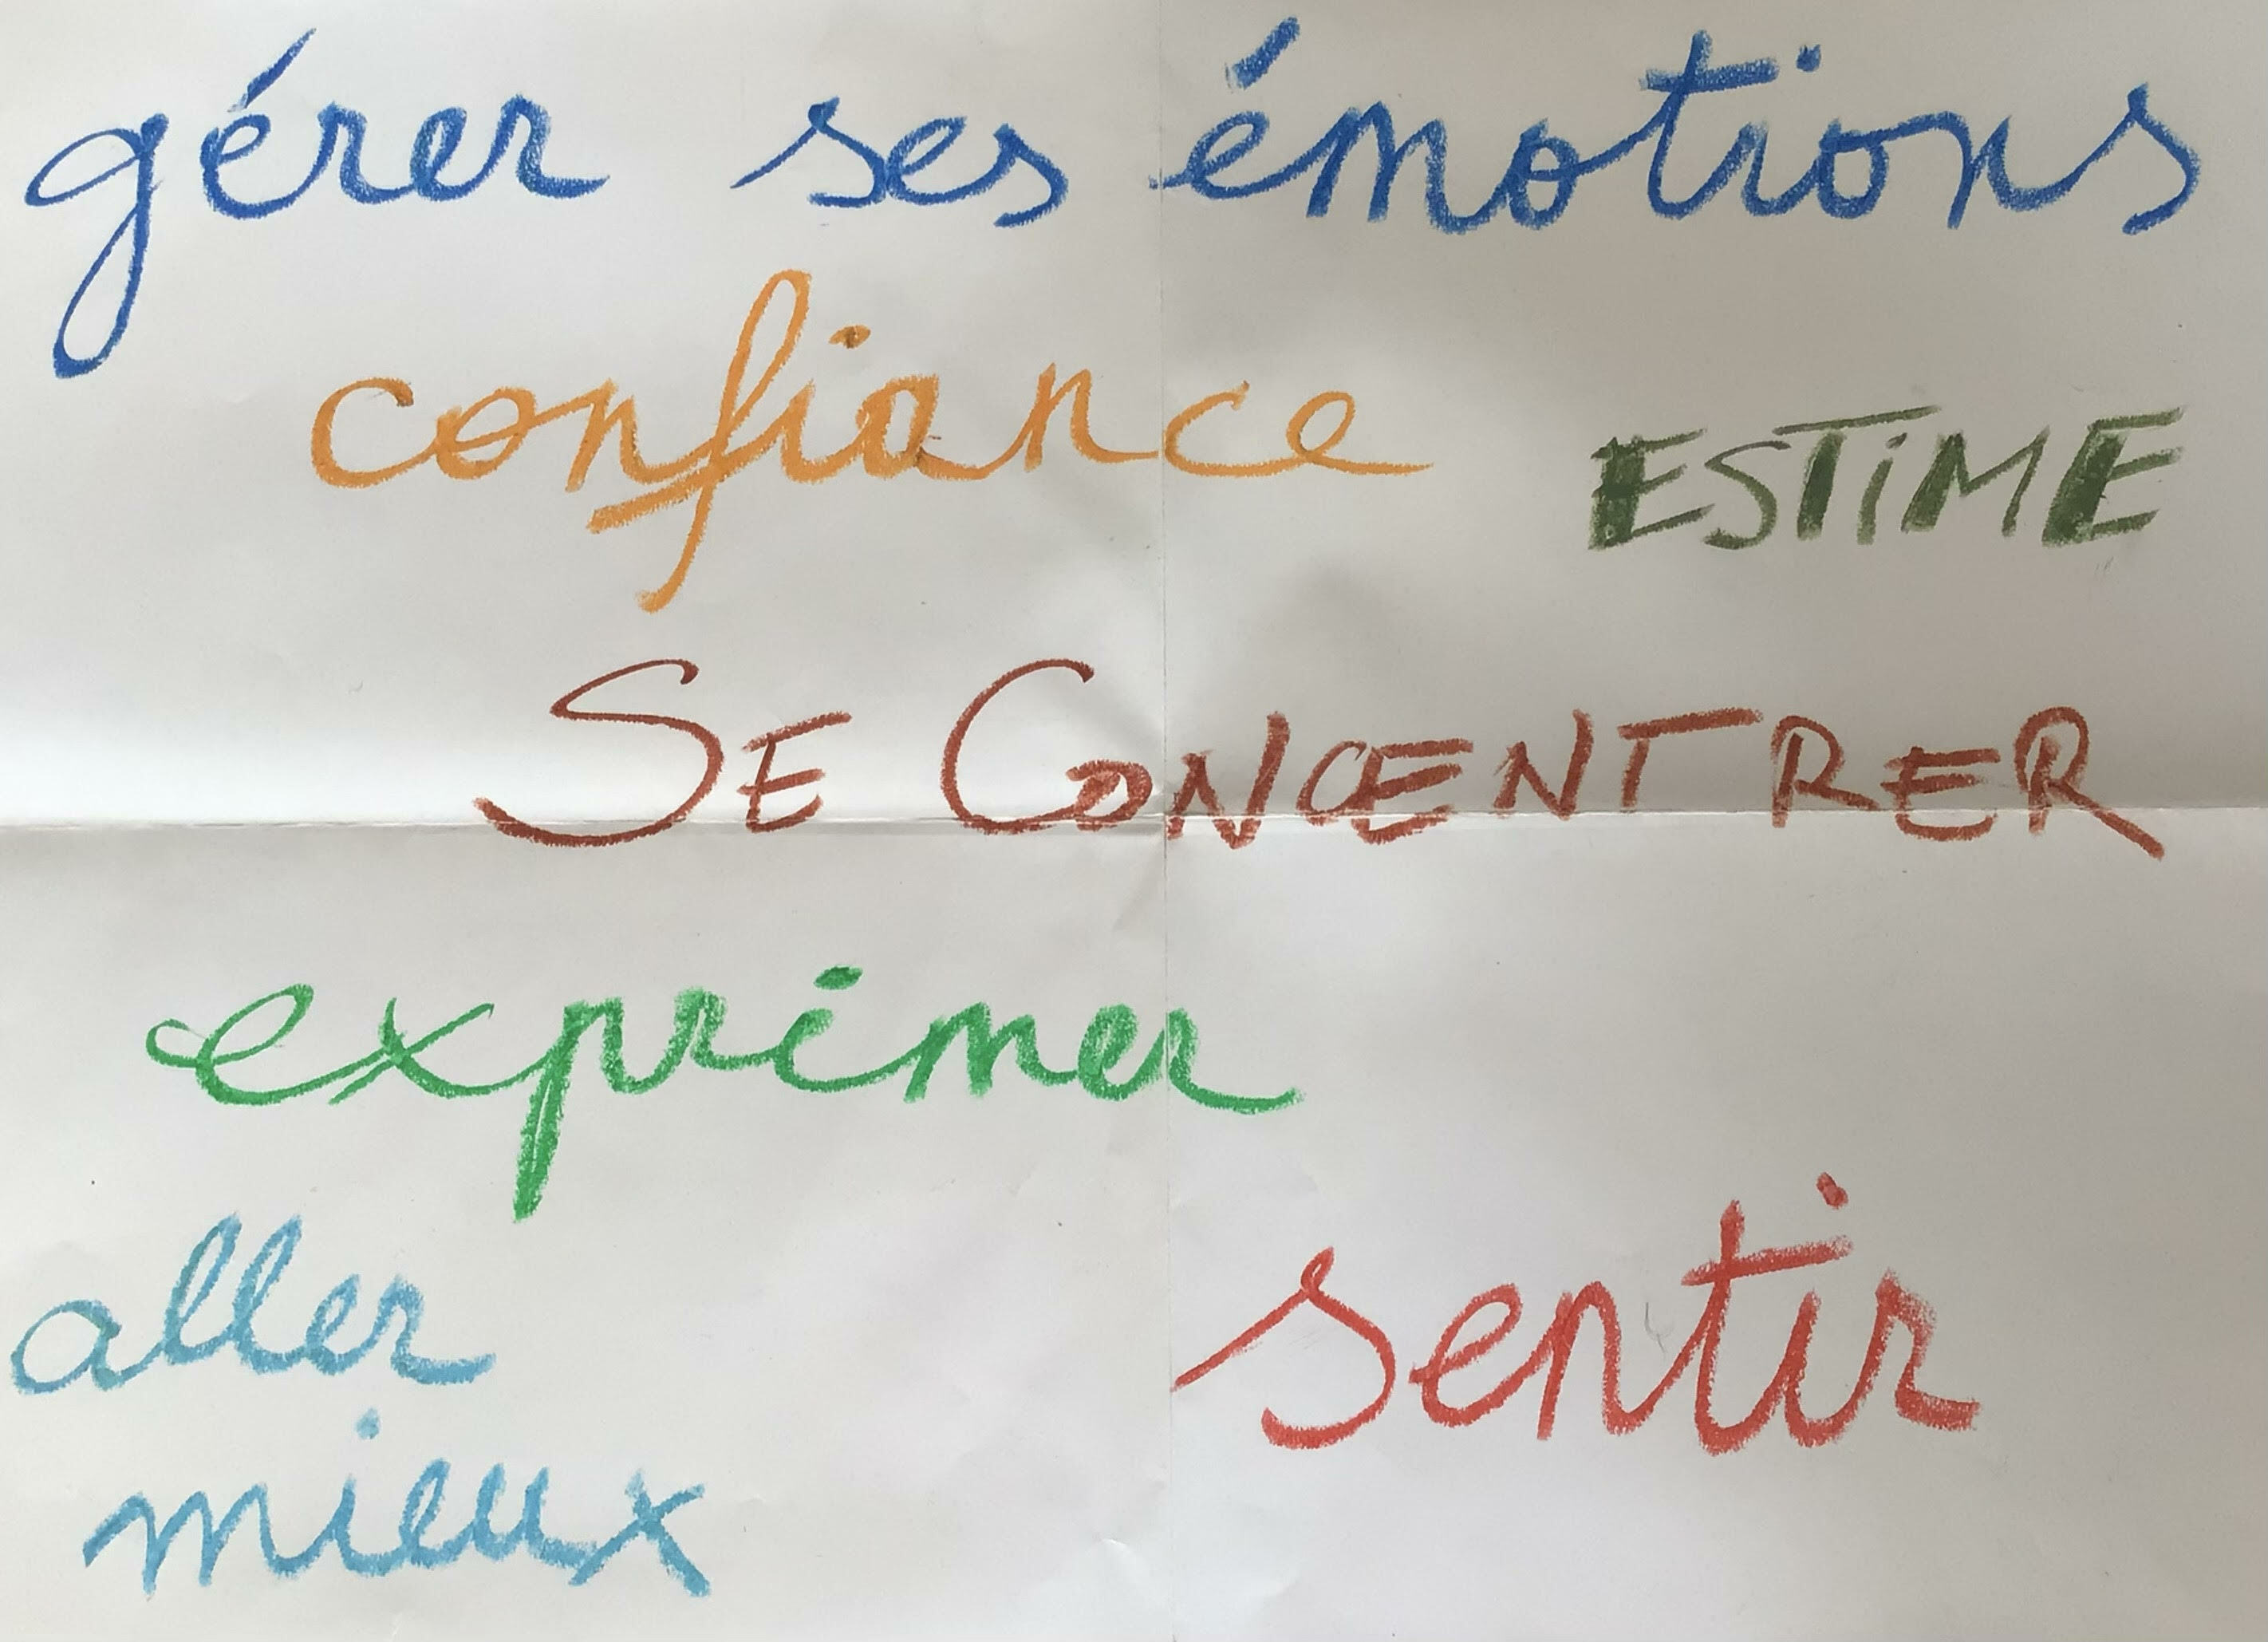 gérer ses émotions
confiance
ESTiME
SE CONCENTRER
exprimer
aller
sentir
mieux